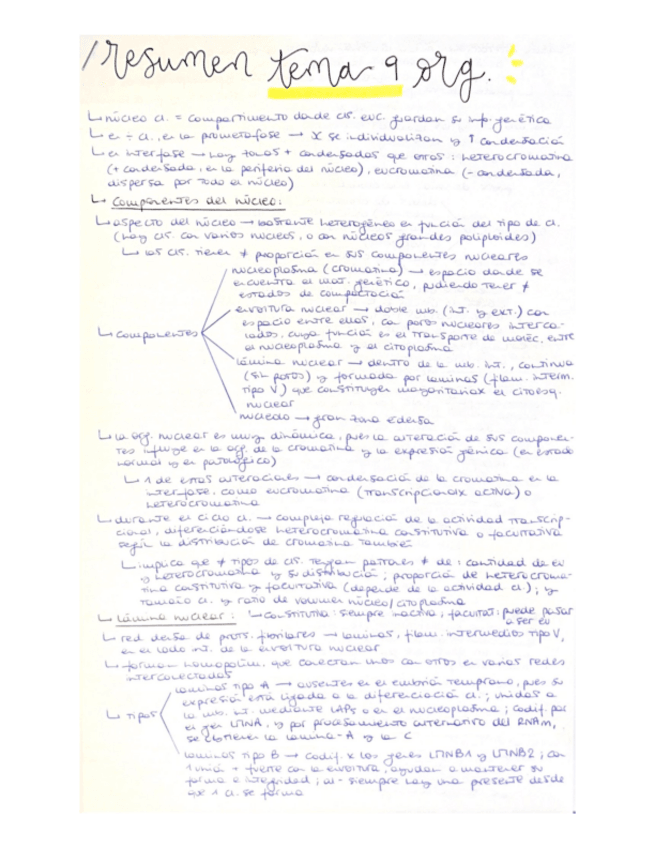 resumen tema 9 org.
↳ núcleo cl. = compartimento donde cls. euc. guardan su info. genética
↳ en ÷ cl., en la prometafase → X se individualizan y ↑ condensación
↳ en interfase → hay zonas + condensadas que otros : heterocromatina
(+ condensada, en la periferia del núcleo), eucromatina (- condensada,
dispersa por todo el núcleo)
↳ Componentes del núcleo:
↳ aspecto del núcleo → bastante heterogéneo en función del tipo de cl.
(hay cls. con varios núcleos, o con núcleos grandes poliploides)
↳ las cls. tienen ≠ proporción en sus componentes nucleares
↳ componentes
nucleoplasma (cromatina) → espacio donde se
encuentra el mat. genético, pudiendo tener ≠
estados de compactación
envoltura nuclear → doble mb. (int. y ext.) con
espacio entre ellas, con poros nucleares interca-
lados, cuya función es el transporte de moléc. entre
el nucleoplasma y el citoplasma
lámina nuclear → dentro de la mb. int., continua
(sin poros) y formada por laminas (filam. interm.
tipo V) que constituyen mayoritariax el citoesq.
nuclear
nucleolo → gran zona + densa
↳ la org. nuclear es muy dinámica, pues la alteración de sus componen-
tes influye en la org. de la cromatina y la expresión génica (en estado
normal y en patológico)
↳ 1 de estas alteraciones → condensación de la cromatina en la
interfase, como eucromatina (transcripcionalx activa) o
heterocromatina
↳ durante el ciclo cl. → compleja regulación de la actividad transcrip-
cional, diferenciándose heterocromatina constitutiva o facultativa
según la distribución de cromatina también
↳ implica que ≠ tipos de cls. tengan patrones ≠ de : cantidad de eu
y heterocromatina y su distribución ; proporción de heterocroma-
tina constitutiva y facultativa (depende de la actividad cl.) ; y
tamaño cl. y ratio de volumen núcleo/citoplasma
↳ Lámina nuclear : ↳ constitutiva: siempre inactiva ; facultat: puede pasar
a ser eu
↳ red densa de prots. fibrilares → laminas, filam. intermedios tipo V,
en el lado int. de la envoltura nuclear
↳ forman homopolím. que conectan unos con otros en varias redes
interconectadas
↳ tipos
laminas tipo A → ausentes en el embrión temprano, pues su
expresión está ligada a la diferenciación cl. ; unidas a
la mb. int. mediante LAPs o en el nucleoplasma ; codif. por
el gen LMNA, y por procesamiento alternativo del RNAm,
se obtiene la lamina-A y la C
laminas tipo B → codif. x los genes LMNB1 y LMNB2 ; con
1 unión + fuerte con la envoltura, ayudan a mantener su
forma e integridad ; al- siempre hay una presente desde
que 1 cl. se forma